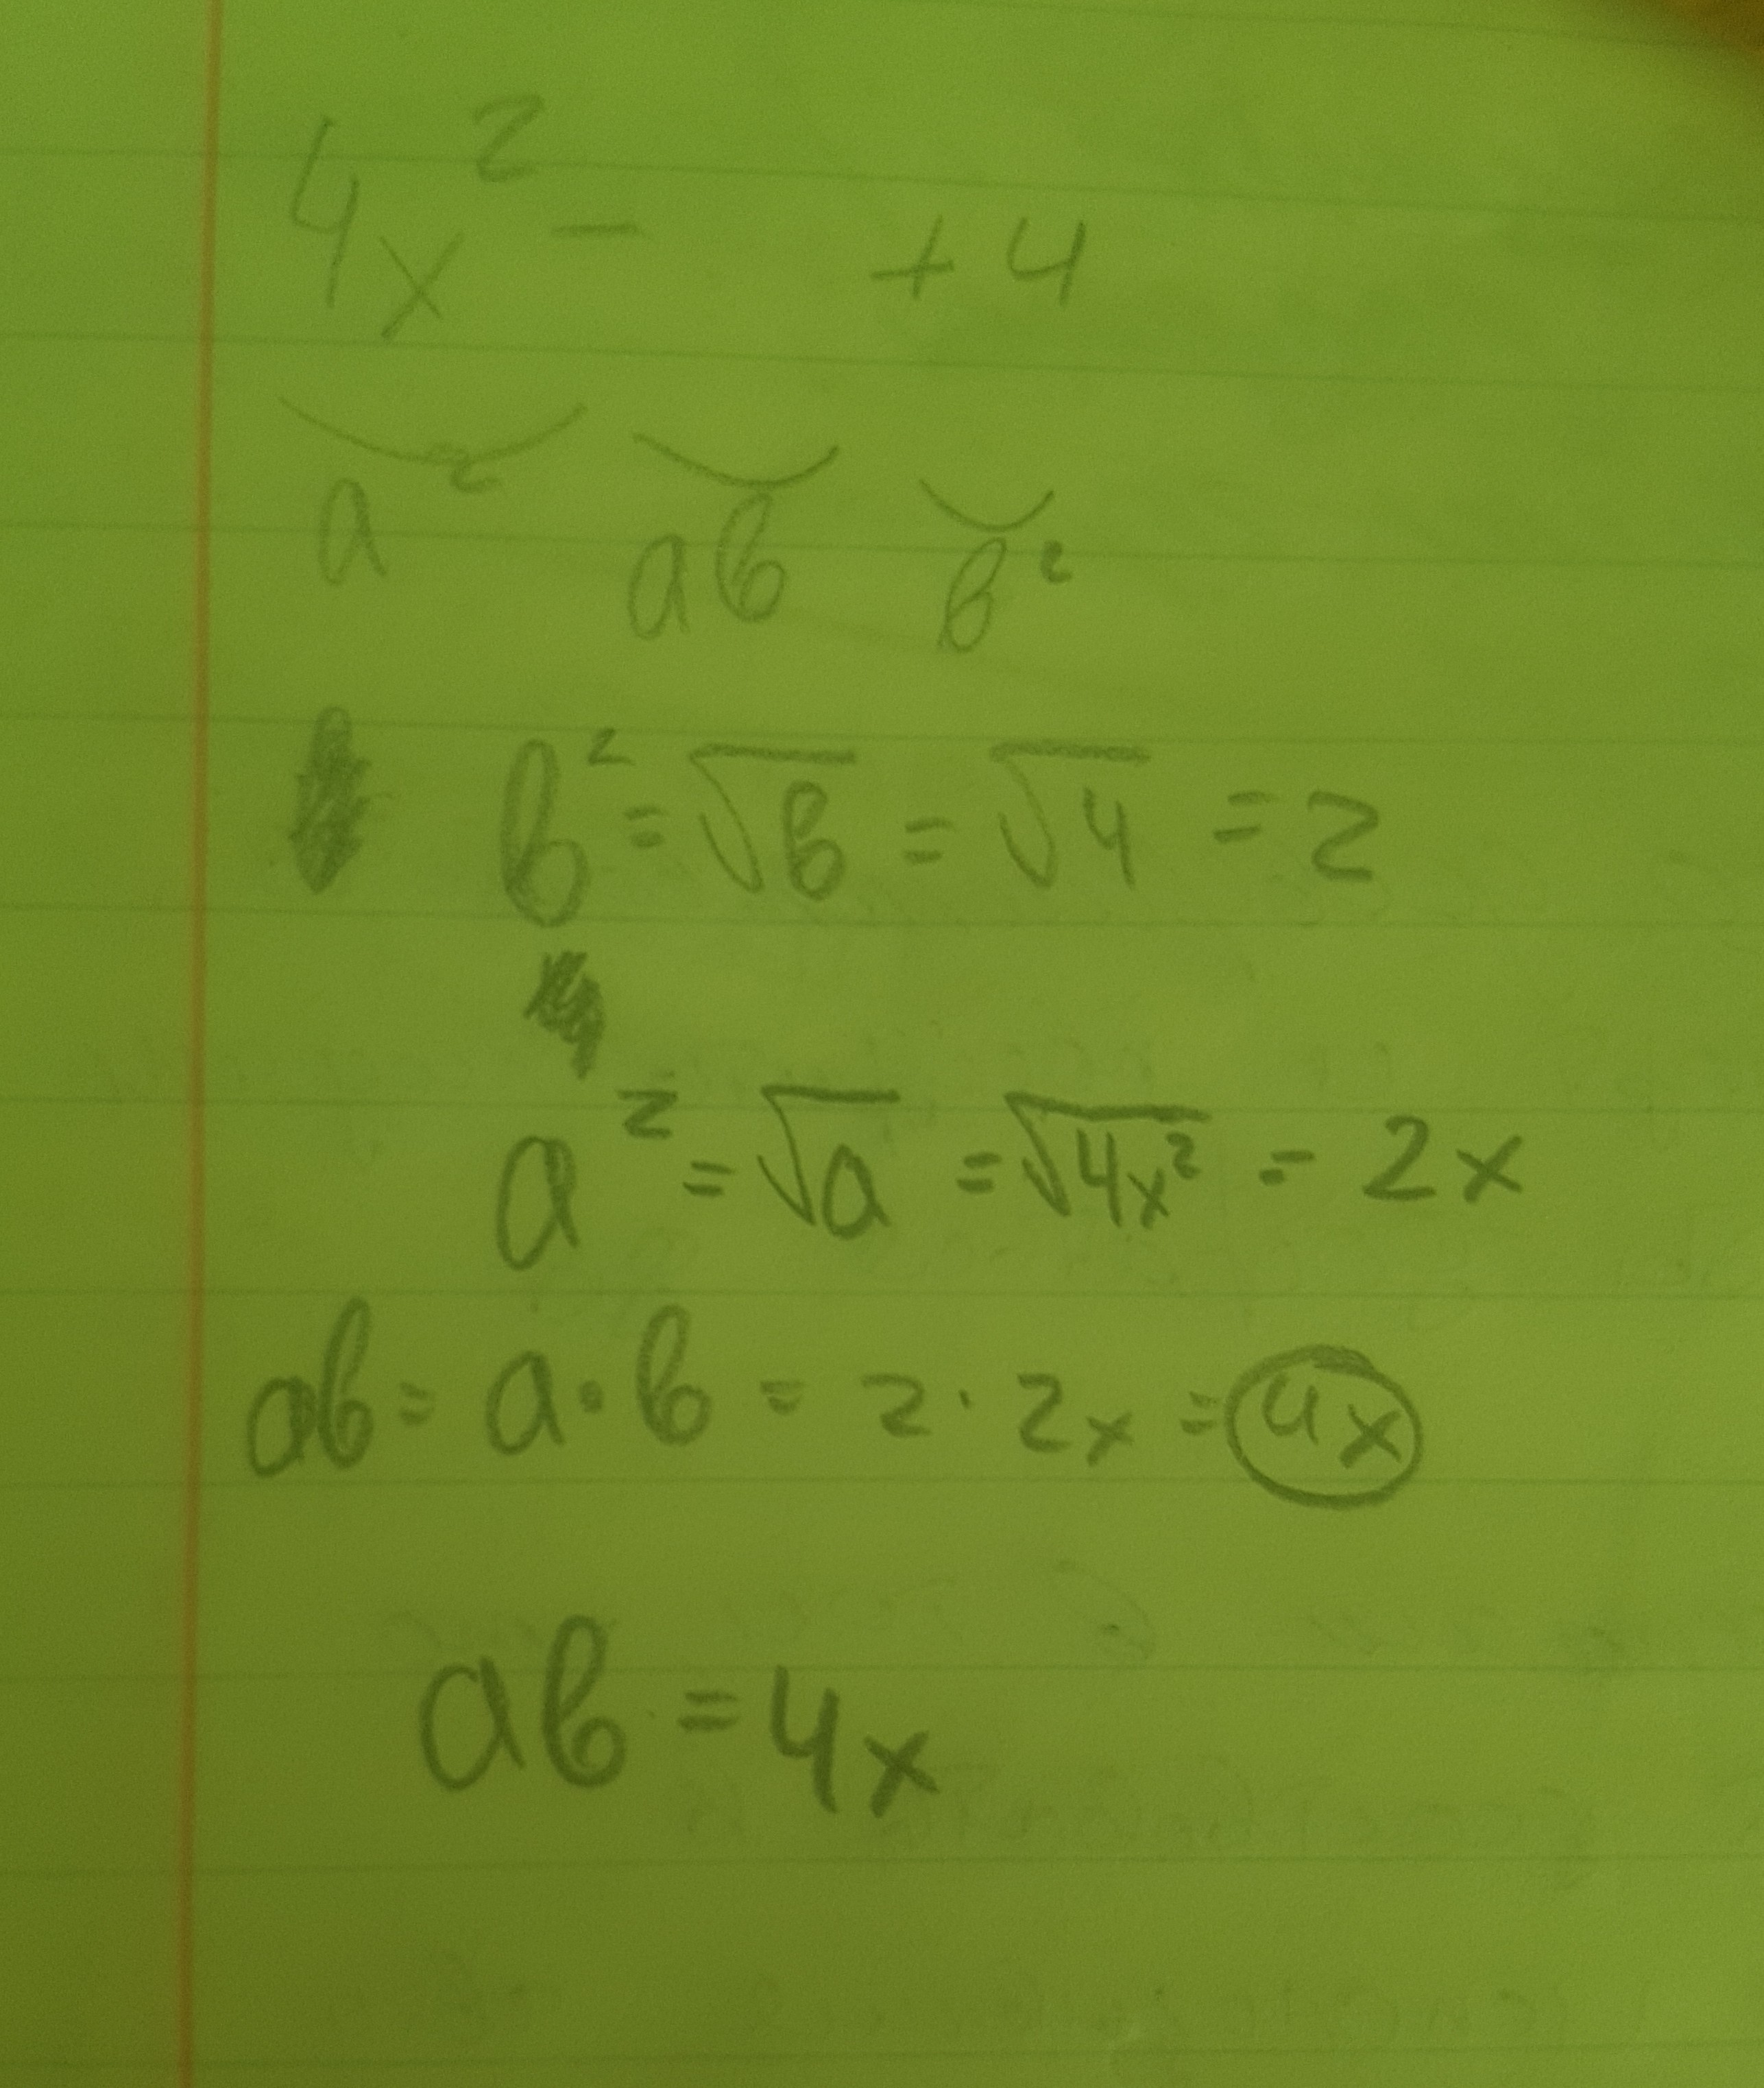 4x² - + 4
a² ab b²
b² = √b = √4 = 2
a² = √a = √4x² = 2x
ab = a · b = 2 · 2x = 4x
ab = 4x